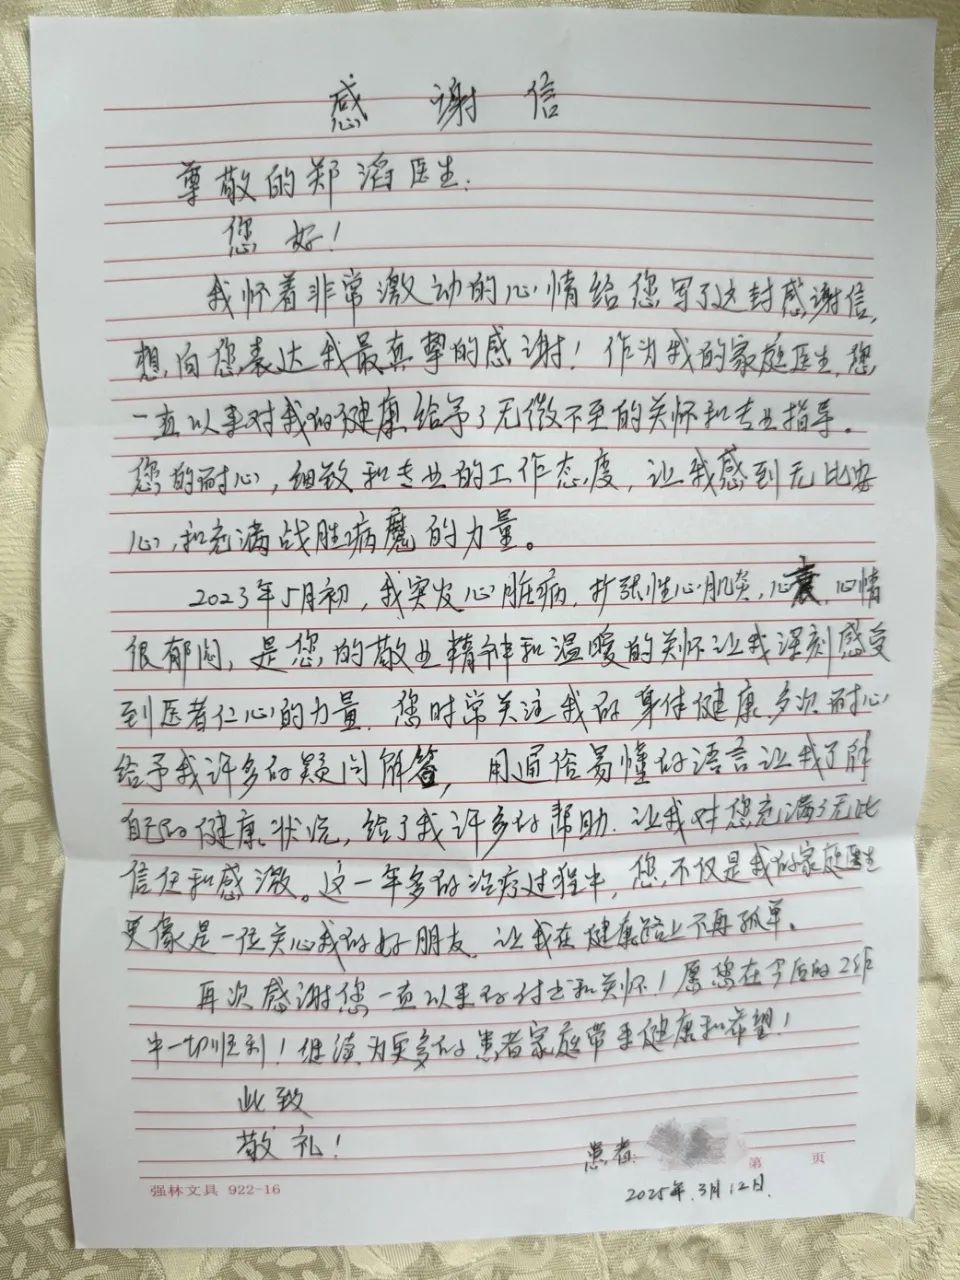 感谢信
尊敬的郑滔医生:
您好!
我怀着非常激动的心情给您写了这封感谢信,
想向您表达我最真挚的感谢!作为我的家庭医生,您
一直以来对我的健康给予了无微不至的关怀和专业指导。
您的耐心,细致和专业的工作态度,让我感到无比安
心,和充满战胜病魔的力量。
2023年5月初,我突发心脏病,扩张性心肌炎,心衰,心情
很郁闷,是您的敬业精神和温暖的关怀让我深刻感受
到医者仁心的力量.您时常关注我的身体健康,多次耐心
给予我许多的疑问解答,用通俗易懂的语言让我了解
自己的健康状况,给了我许多的帮助.让我对您充满了无比
信任和感激。这一年多的治疗过程中,您不仅是我的家庭医生
更像是一位关心我的好朋友.让我在健康路上不再孤单。
再次感谢您一直以来的付出和关怀!愿您在今后的工作
中一切顺利!继续为更多的患者家庭带来健康和希望!
此致
敬礼!
患者:
第 页
强林文具 922-16
2025年.3月12日.